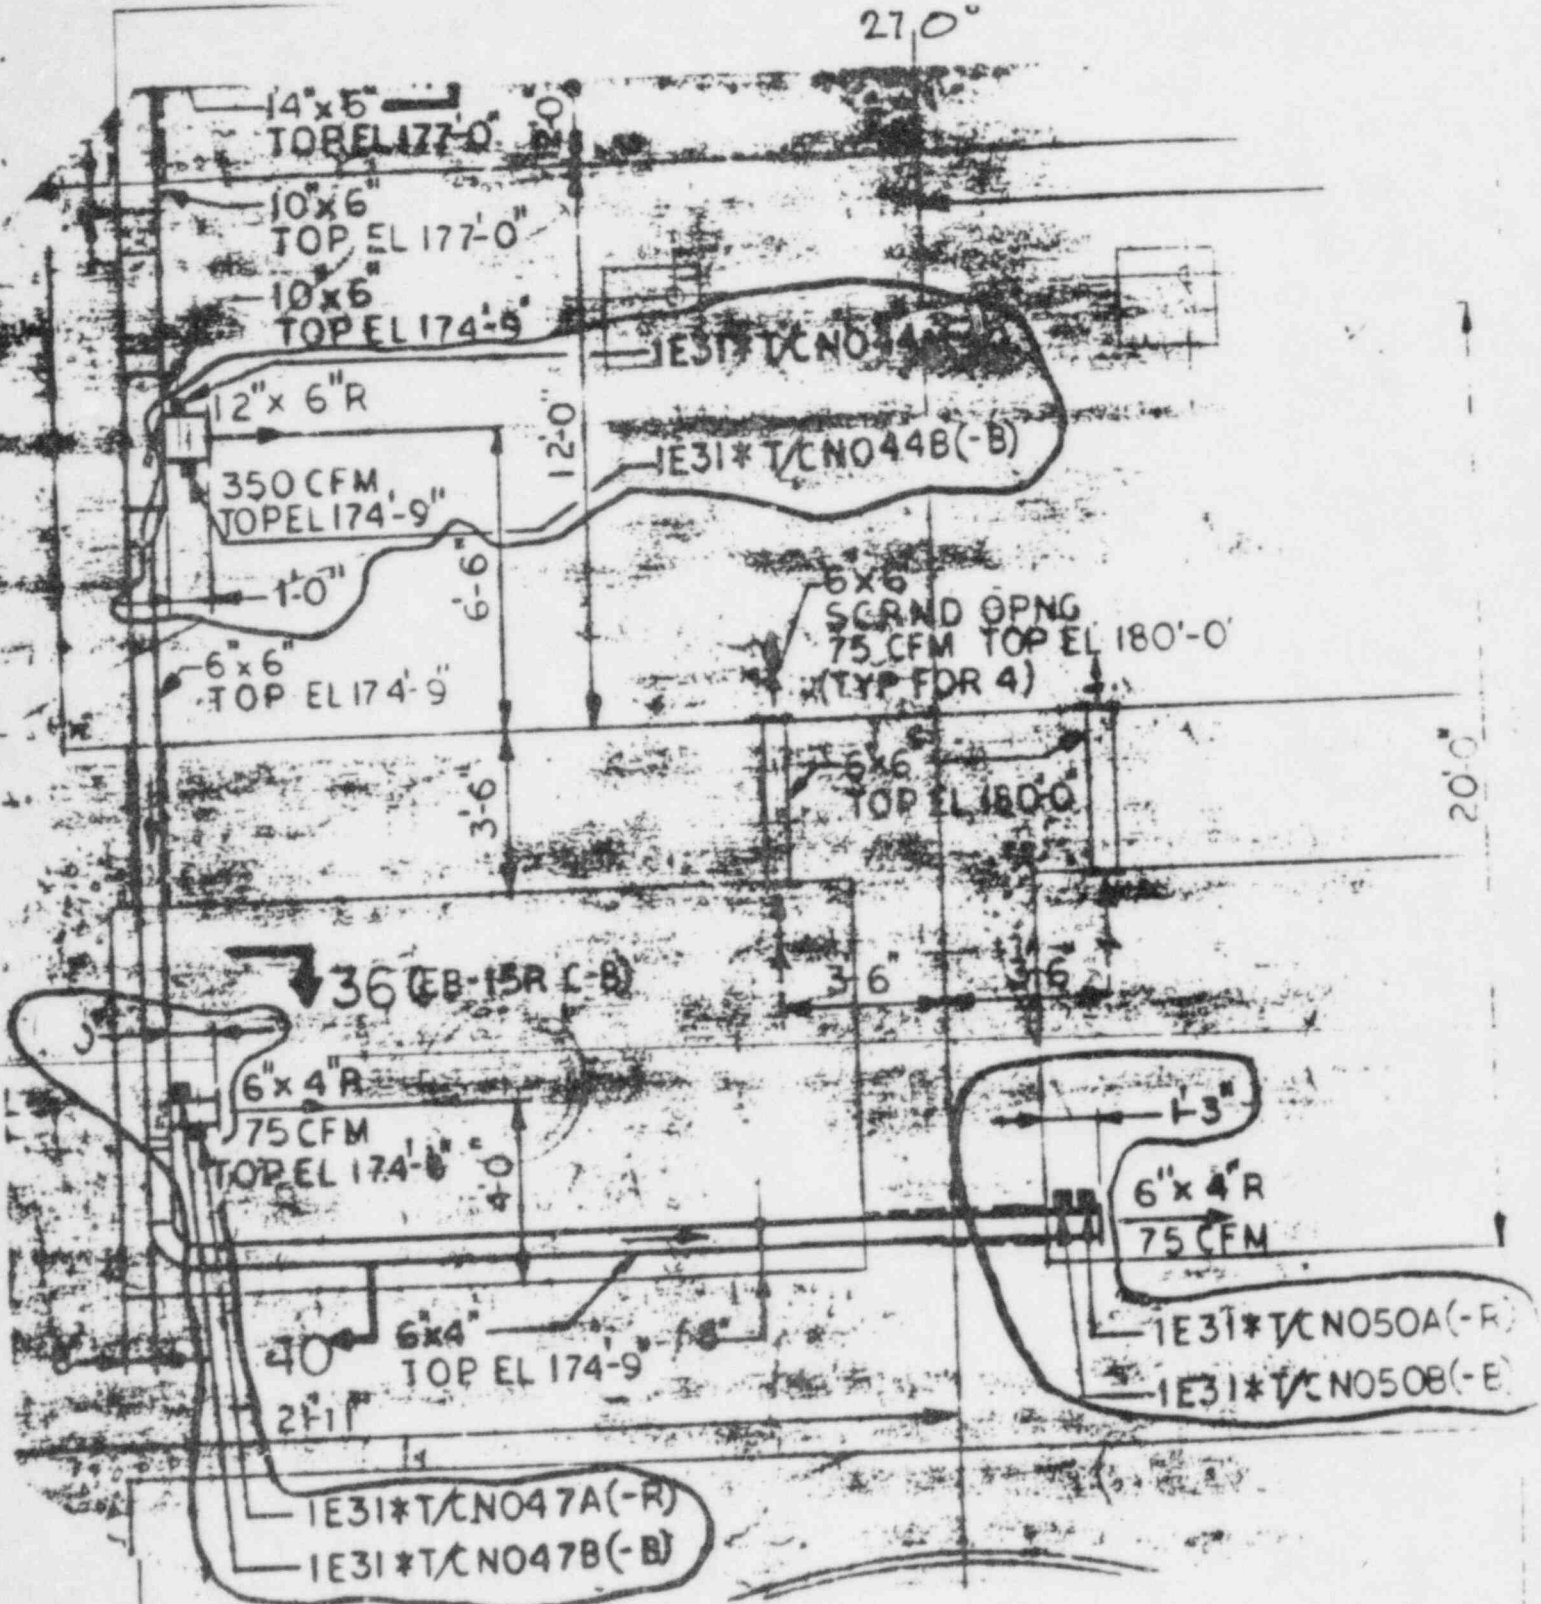 270°
14"x6"
TOP EL 177'-0"
10"x6"
TOP EL 177'-0"
10"x6"
TOP EL 174'-9"
1E31*T/CN044
12"x 6"R
12'-0"
1E31*T/CN044B(-B)
350 CFM
TOP EL 174'-9"
1'-0"
6'-6"
6"x6"
SCRND OPNG
75 CFM TOP EL 180'-0"
(TYP FOR 4)
6"x6"
TOP EL 174'-9"
3'-6"
6"x6"
TOP EL 180'-0"
20'-0"
36 (EB-15R C-B)
3'-6"
3'-6"
6"x 4"R
75 CFM
TOP EL 174'
4'-0"
1'-3"
6"x 4"R
75 CFM
40
6"x4"
TOP EL 174'-9"
1E31*T/CN050A(-R)
1E31*T/CN050B(-B
21'-11"
1E31*T/CN047A(-R)
1E31*T/CN047B(-B)